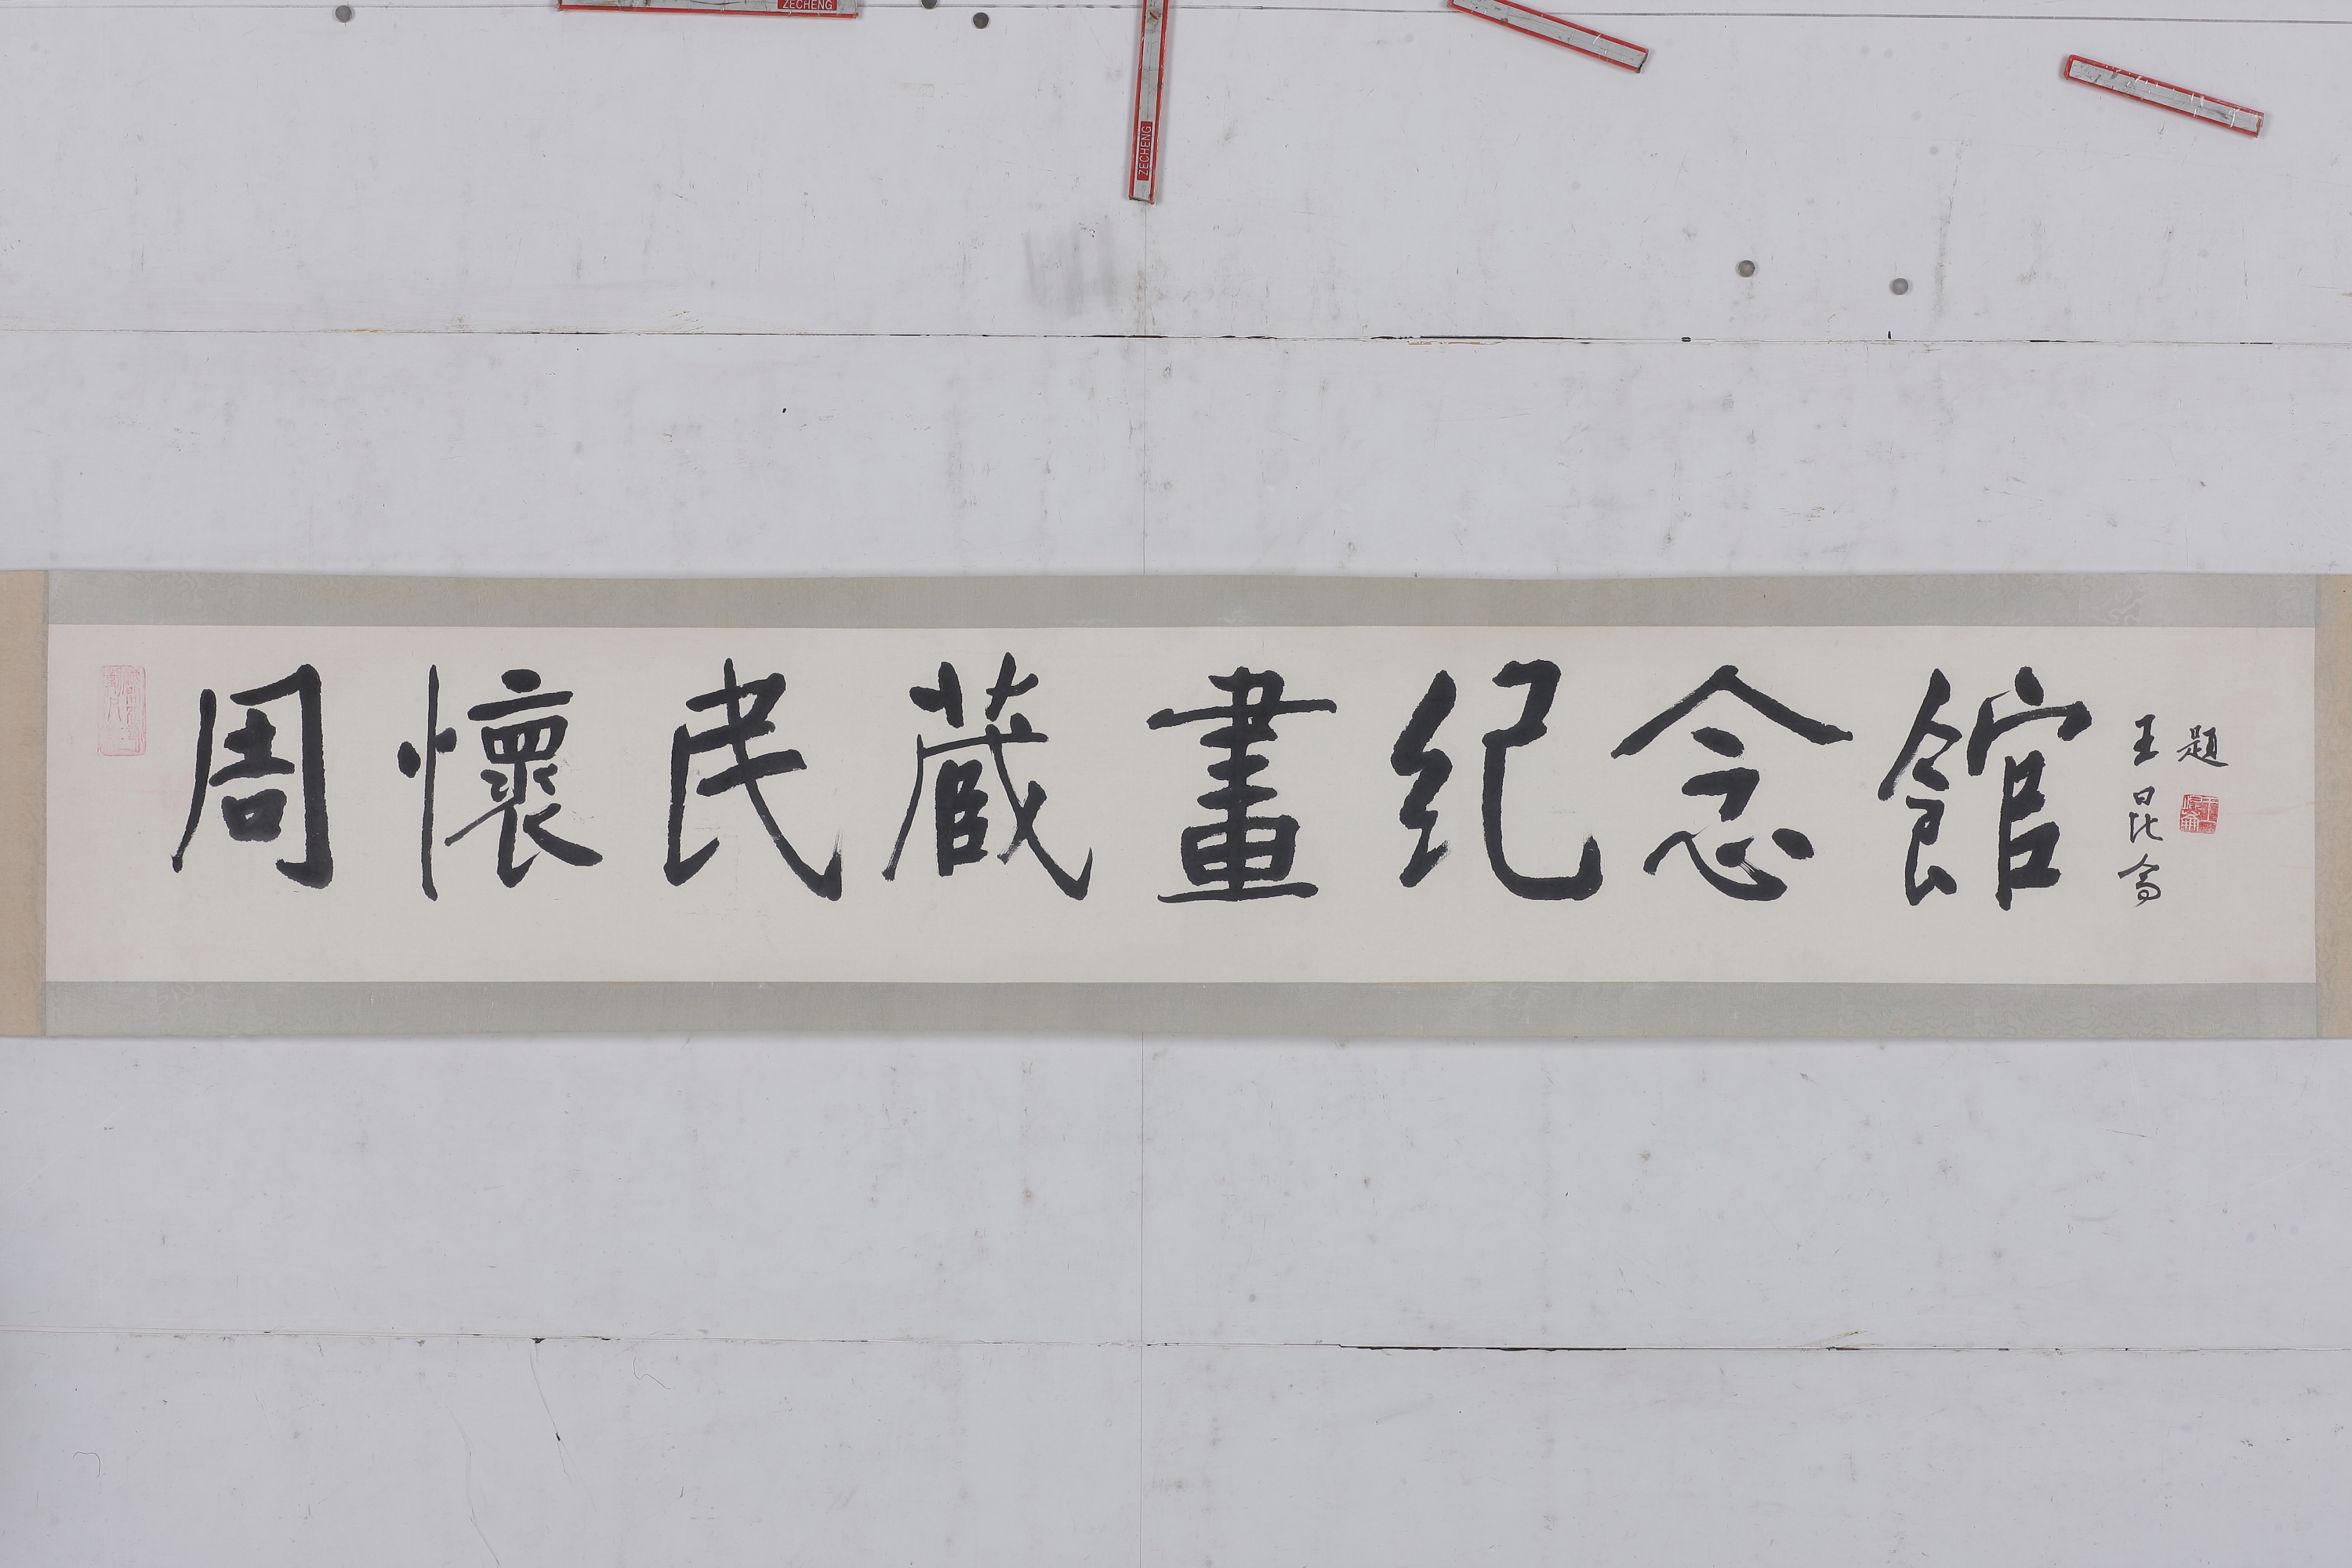 周懷民蔵畫紀念館
王昆侖
題
ZECHENG
ZECHENG